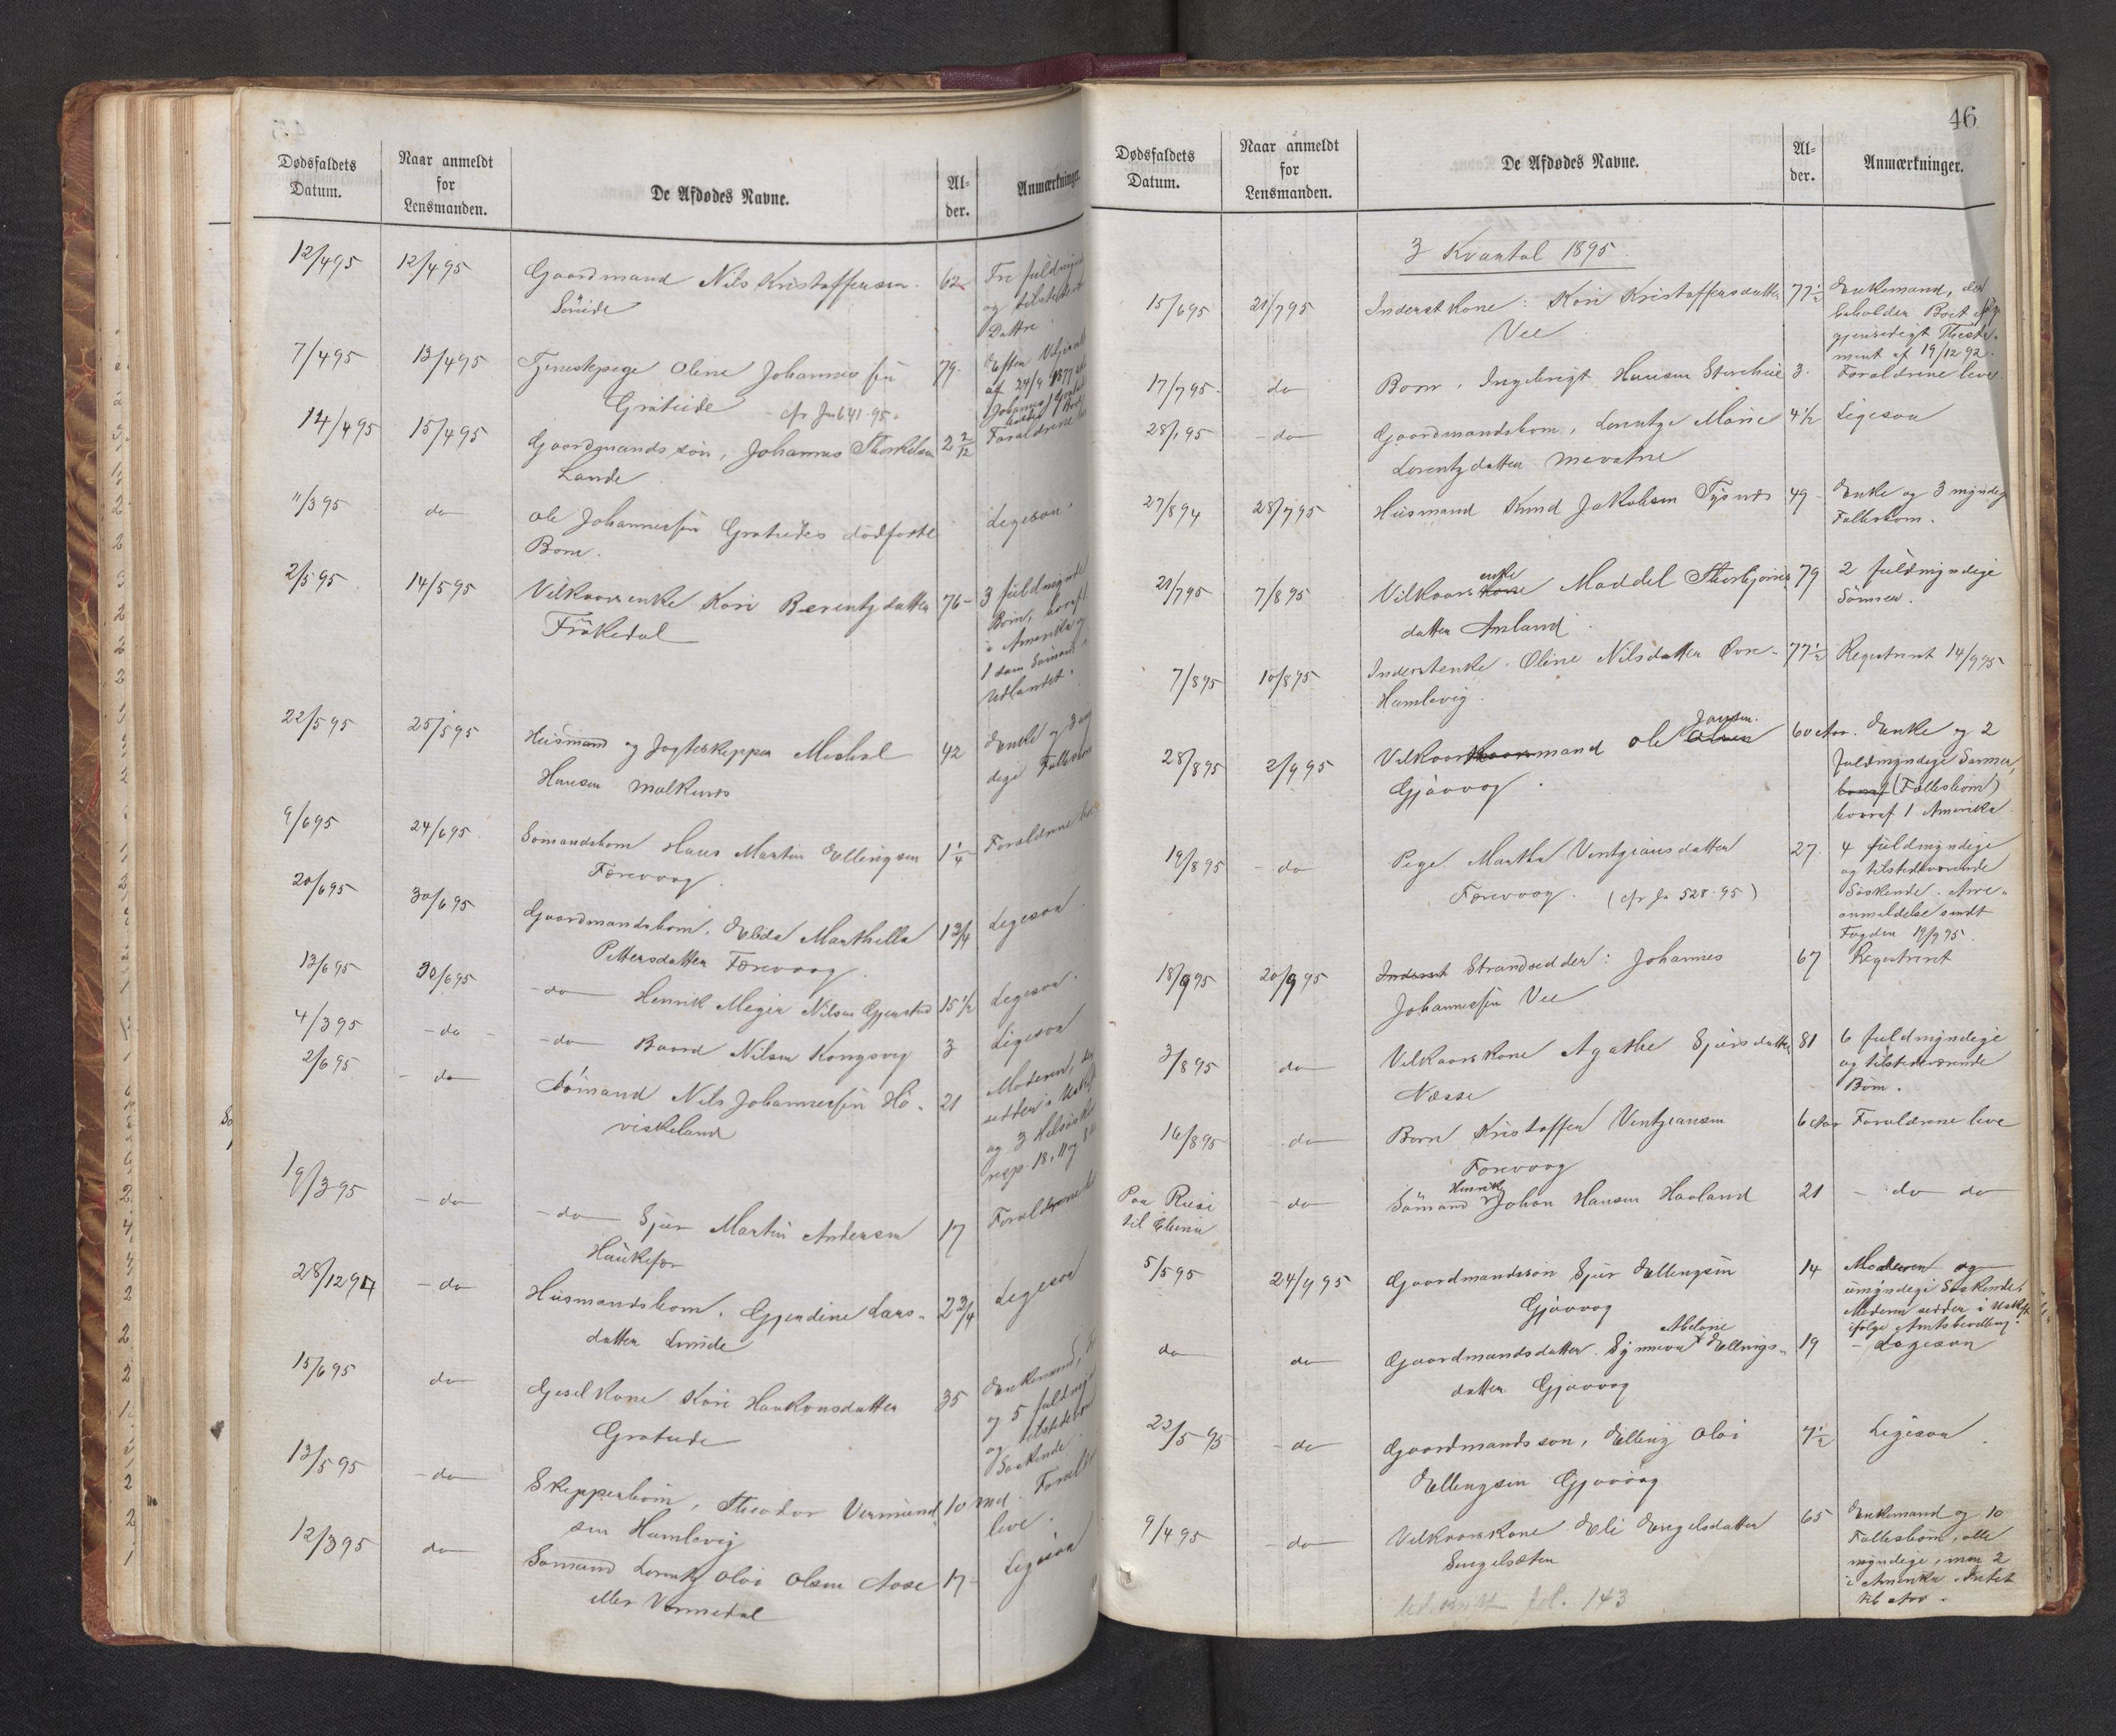 Dødsfaldets Datum.
Naar anmeldt for Lensmanden.
De Afdødes Navne.
Al-
der.
Anmærkninger.
12/4 95 12/4 95 Gaardmand Nils Kristoffersen 62 Tre fuldmyn
Søreide og tilstede
Døttre
7/4 95 13/4 95 Tjenestepige Oline Johannes 79.
af 24/9 1877
Grateide - cfr Jn 641-95.
14/4 95 15/4 95 Gaardmands søn, Johannes Thorkelsen 2 2/12 Forældrene
Lande
11/3 95 do Ole Johannessen Grateides dødfødte Ligesaa
Barn.
2/5 95 14/5 95 Vilkaarsenke Kari Berentsdatter 76 - 3 fuldmyndi
Frøkedal Børn, hvoraf
i Amerika og
1 som Sømand i
Udlandet.
22/5 95 25/5 95 Husmand og Jagteskipper Mikal 42 Enke og 3
Hansen Malkenes dige Fællesbørn
9/6 95 24/6 95 Sømandsbarn Hans Martin Ellingsen 1 1/4 Forældrene
Færevaag.
20/6 95 30/6 95 Gaardmandsbarn. Elida Marthella 1 3/4 Ligesaa
Pettersdatter Færevaag.
13/6 95 30/6 95 - do - Henrik Meyer Nilsen Gjerstad 15 1/2 Ligesaa.
4/3 95 - do - - do - Baard Nilsen Kongsvig 3 Ligesaa
2/6 95 - do Sømand Nils Johannessen Hø- 21 Moderen,
viskeland sidder i Uskift
og 3 Helsøsken
resp. 18, 11 og 8
19/3 95 - do - do - Sjur Martin Andersen 17 Forældrene
Haukefær
28/12 94 - do Husmandsbarn. Gjendine Lars- 2 3/4 Ligesaa
datter Lunde
15/6 95 do Kone Kari Haakonsdatter 35 Enkemand,
Grateide og 5 fuldmyn
og tilstede
Søskende
13/5 95 - do Skipperbarn, Theodor Vermund 10 Md. Foræl
sen Humlevig leve.
12/3 95 do Sømand Lorentz Olai Olsen Aase 17 - Ligesaa
eller Vermedal
46
Dødsfaldets Datum.
Naar anmeldt for Lensmanden.
De Afdødes Navne.
Al-
der.
Anmærkninger.
3 Kvartal 1895.
15/6 95 21/7 95 Inderst Kone: Kari Kristoffersdatter 77 1/2 Enkemand, der
Vee beholder Boet
gjensidigt Testa-
ment af 19/12 92.
17/7 95 do Barn, Ingebrigt Hansen Storehue 3. Forældrene lever
28/ 95 - do Gaardmandsbarn, Lorentze Marie 4 1/2 Ligesaa
Lorentzdatter Mevatne
27/8 94 28/7 95 Husmand Knud Jakobsen Tysnes 49 - Enke og 3 myndige
Fællesbørn.
21/7 95 7/8 95 Vilkaars Kone enke Maddel Thorbjørns 79 2 fuldmyndige
datter Amland Sønner.
7/8 95 10/8 95 Inderstenke. Oline Nilsdatter Øvre- 77 1/2 Registreret 14/9 95
Humlevig.
28/8 95 2/9 95 Vilkaarsmand Ole Olsen Jansen. 60 Aar. Enke og 2
Gjøvaag. fuldmyndige Sønner,
(Fællesbørn)
hvoraf 1 Amerika
19/8 95 - do Pige Martha Ventziansdatter 27. 4 fuldmyndige
Færevaag. (cfr Jn 528-95) og tilstedeværende
Søskende. Arve-
anmeldelse sendt
Fogden 19/9 95.
18/9 95 20/9 95 Inderst Strandsidder: Johannes 67 Registreret
Johannessen Vee
3/8 95 do Vilkaarskone Agathe Sjursdatter 81 6 fuldmyndige
Næsse og tilstedeværende
Børn.
16/8 95 do Barn Kristoffer Ventziansen 6 Aar Forældrene leve
Færevaag
Paa Reise - do Sømand Henrik Johan Hansen Haaland 21 - do do
til China
5/5 95 24/9 95 Gaardmandssøn Sjur Ellingsen 14 Moderen og
Gjøvaag umyndige Søskende,
Moderen sidder i Uskifte
ifølge Amtsbevilling.
do do Gaardmandsdatter. Synneva Abelone Ellings- 19 - Ligesaa
datter Gjøvaag
22/5 95 - do Gaardmandssøn, Elling Olai 7 1/2 Ligesaa
Ellingsen Gjøvaag
9/4 95 - do Vilkaarskone Eli Engelsdatter 65 Enkemand og 10
Singelsæten Fællesbørn, alle
myndige, men 2
i Amerika. Intet
til Arv.
fol. 143